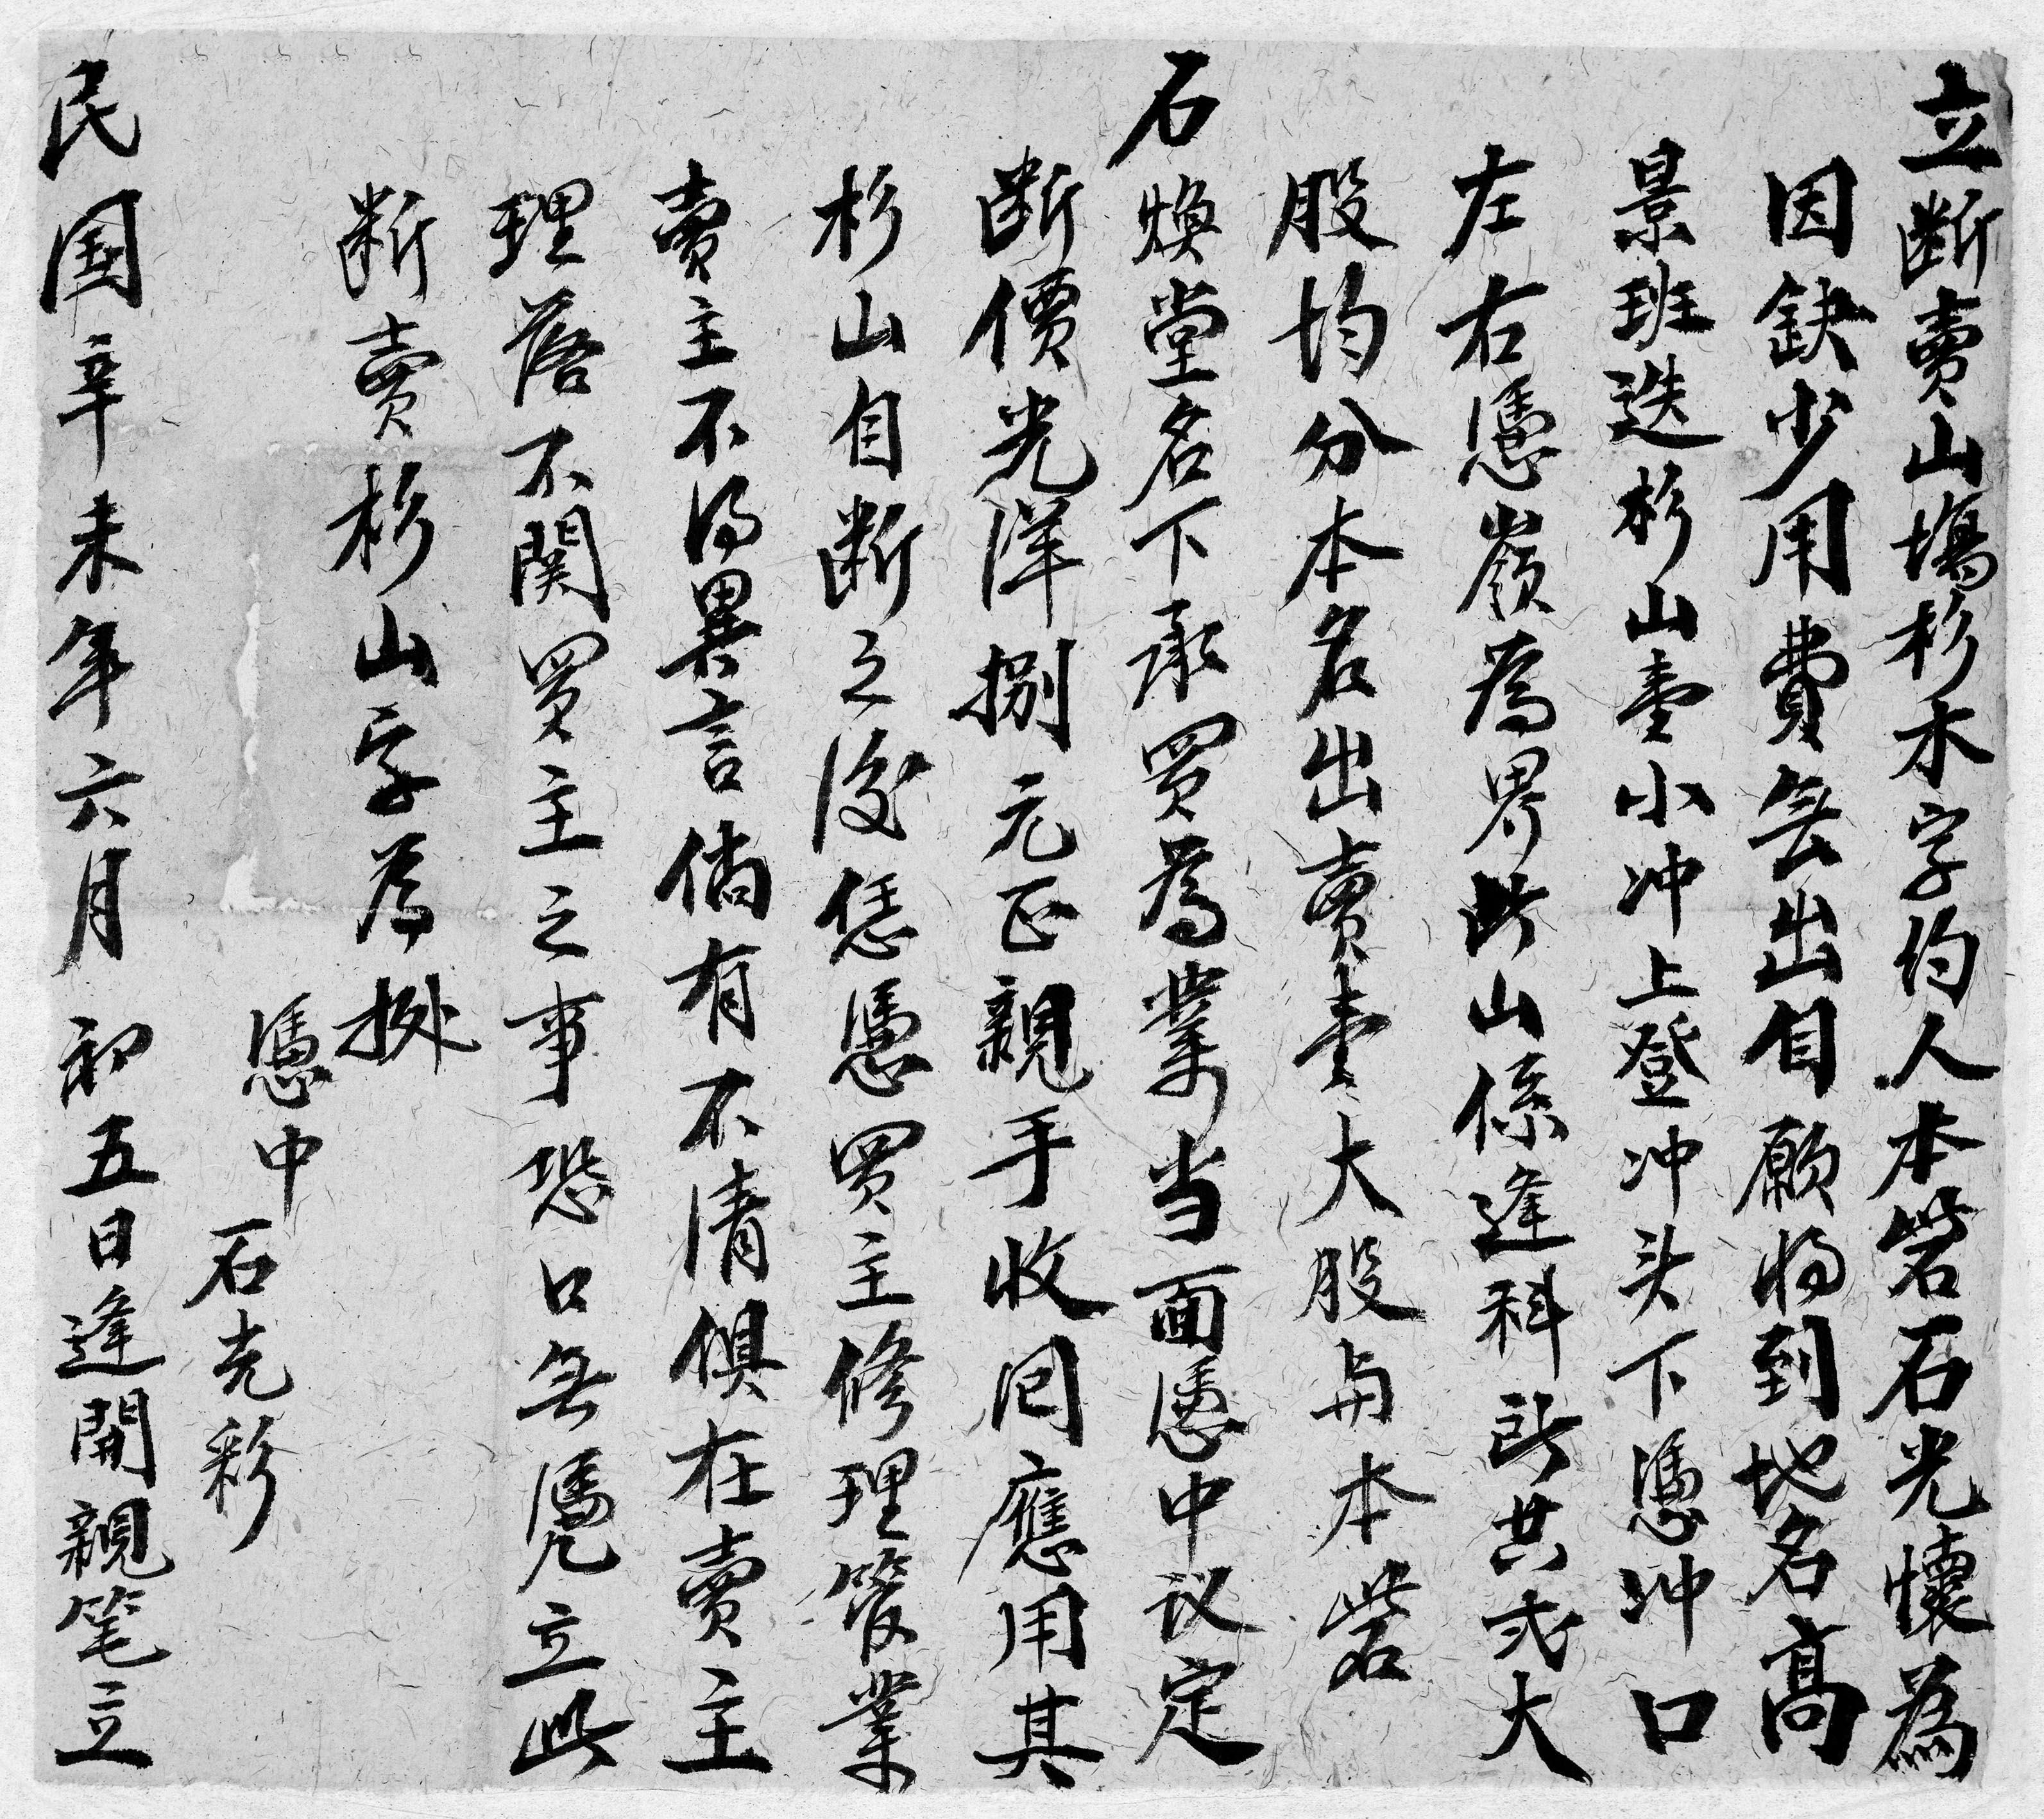 立断賣山塲杉木字約人本砦石光懷為
因缺少用費無出自願将到地名高
景班迭杉山壹小冲上登冲头下憑冲口
左右憑嶺為界此山係逢科所共弍大
股均分本名出賣壹大股与本砦
石煥堂名下承買為業当面憑中议定
断價光洋捌元正親手收囘應用其
杉山自断之後恁憑買主修理管業
賣主不得異言倘有不清俱在賣主
理落不関買主之事恐口無凴立此
断賣杉山字為㨿
憑中　石克彩
民国辛未年六月初五日逢開親笔立